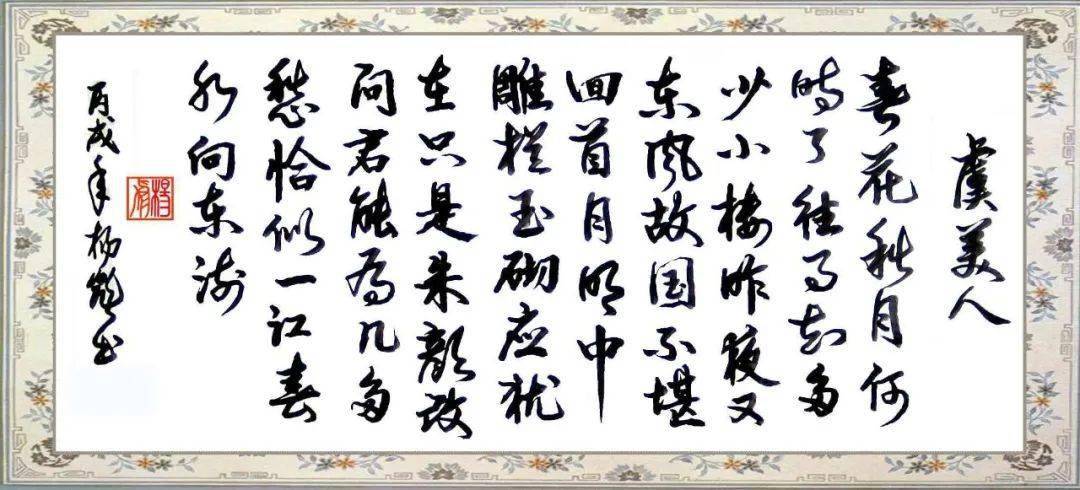 虞美人
春花秋月何
时了往事知多
少小楼昨夜又
东风故国不堪
回首月明中
雕栏玉砌应犹
在只是朱颜改
问君能为几多
愁恰似一江春
水向东流
丙戌年杨书